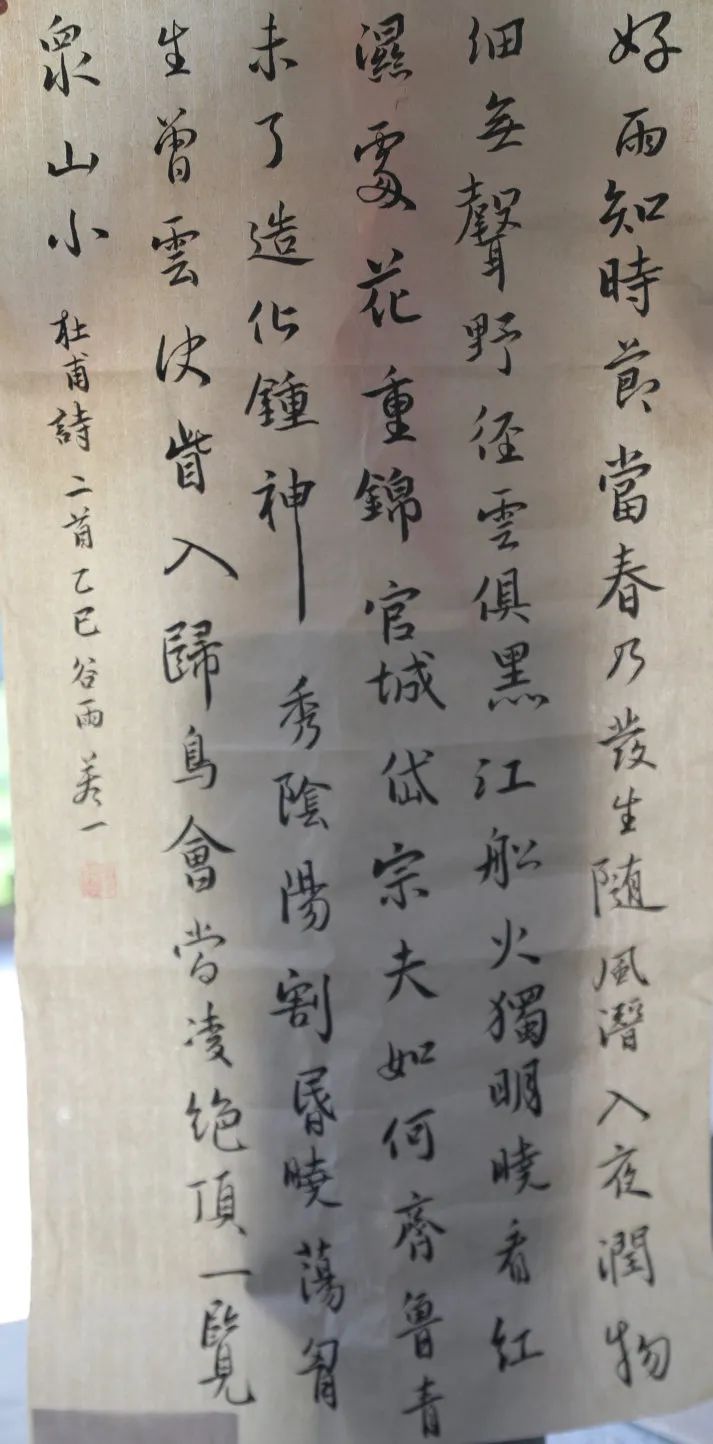 好雨知時節當春乃發生随風潛入夜潤物
細無聲野徑雲俱黑江船火獨明曉看紅
濕處花重錦官城岱宗夫如何齊魯青
未了造化鍾神秀陰陽割昬曉蕩胷
生曽雲决眥入歸鳥會當凌絶頂一覽
衆山小
杜甫詩二首乙巳谷雨